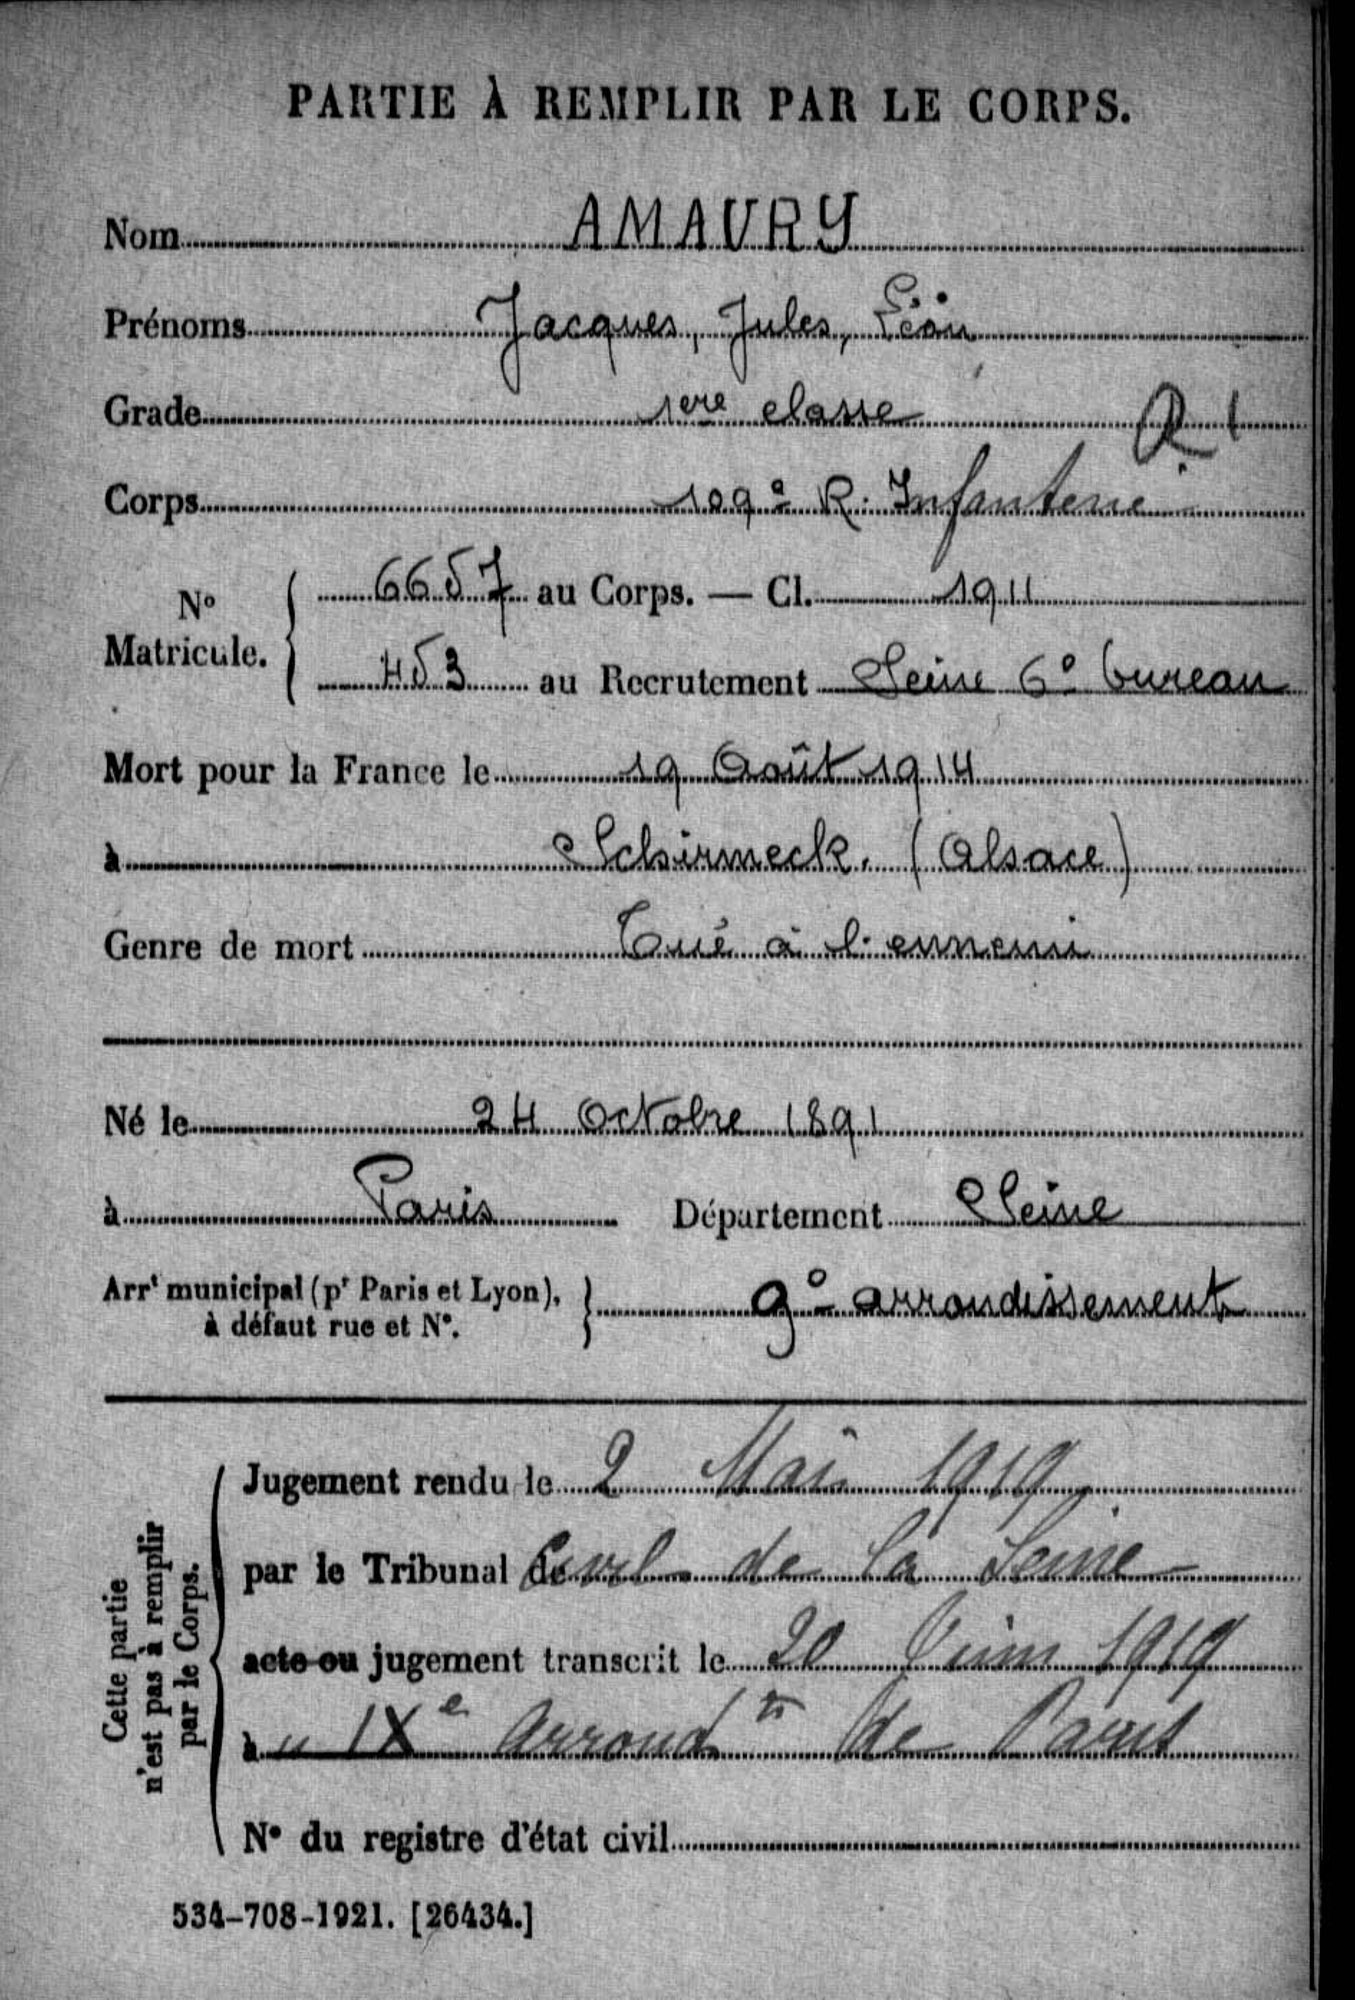 PARTIE À REMPLIR PAR LE CORPS.
Nom AMAURY
Prénoms Jacques, Jules, Léon
Grade 1ere classe
R 1
Corps 109e R. Infanterie
N° Matricule. 6657 au Corps. — Cl. 1911
453 au Recrutement Seine 6e bureau
Mort pour la France le 19 Août 1914
à Schirmeck. (Alsace)
Genre de mort Tué à l'ennemi
Né le 24 Octobre 1891
à Paris Département Seine
Arrt municipal (pr Paris et Lyon), à défaut rue et N°. 9e arrondissement
Cette partie n'est pas à remplir par le Corps.
Jugement rendu le 2 Mai 1919
par le Tribunal de Civil de la Seine
acte ou jugement transcrit le 20 Juin 1919
à " IXe Arrondt de Paris
N° du registre d'état civil
534-708-1921. [26434.]